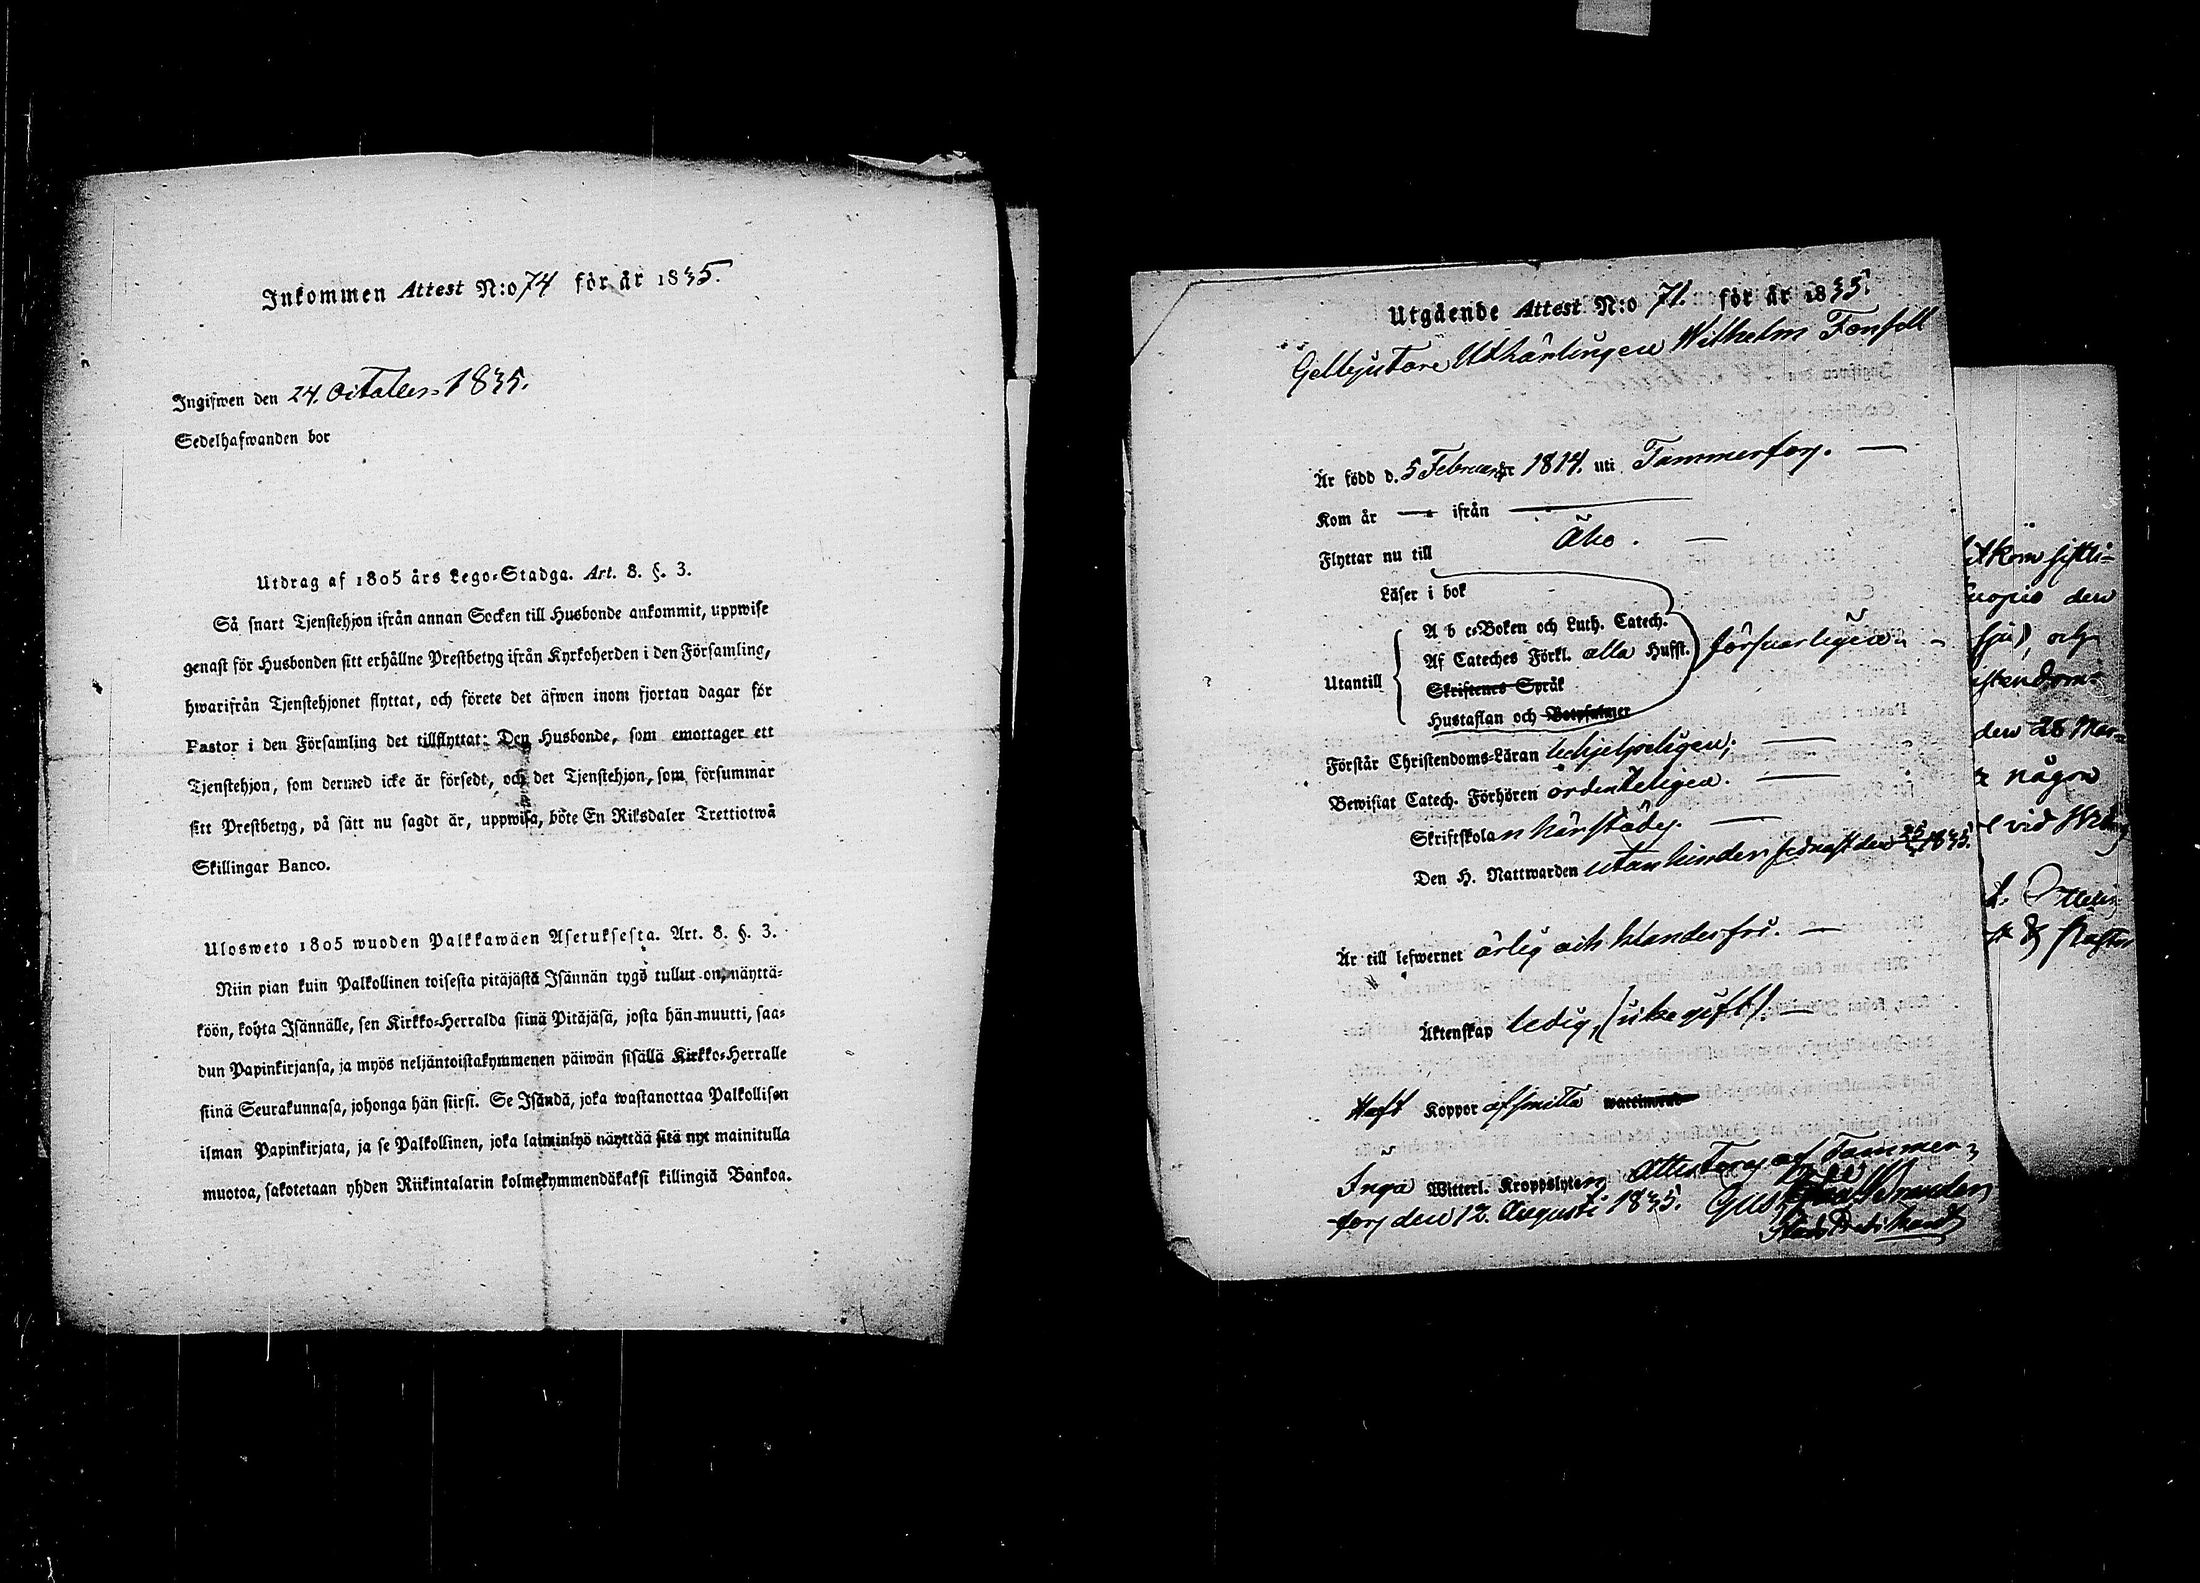 Inkommen Attest N:o 74 för år 1835.
Ingifwen den 24. October 1835.
Sedelhafwanden bor
Utdrag af 1805 års Lego-Stadga. Art. 8. §. 3.
Så snart Tjenstehjon ifrån annan Socken till Husbonde ankommit, uppwise
genast för Husbonden sitt erhållne Prestbetyg ifrån Kyrkoherden i den Församling,
hwarifrån Tjenstehjonet flyttat, och förete det äfwen inom fjortan dagar för
Pastor i den Församling det tillflyttat: Den Husbonde, som emottager ett
Tjenstehjon, som dermed icke är försedt, och det Tjenstehjon, som försummar
sitt Prestbetyg, på sätt nu sagdt är, uppwisa, böte En Riksdaler Trettiotwå
Skillingar Banco.
Ulosweto 1805 wuoden Palkkawäen Asetuksesta. Art. 8. §. 3.
Niin pian kuin Palkollinen toisesta pitäjästä Isännän tygö tullut on, näyttä-
köön, kohta Isännälle, sen Kirkko-Herralda siinä Pitäjäsä, josta hän muutti, saa-
dun Papinkirjansa, ja myös neljäntoistakymmenen päiwän sisällä Kirkko-Herralle
siinä Seurakunnasa, johonga hän siirsi. Se Isändä, joka wastanottaa Palkollisen
ilman Papinkirjata, ja se Palkollinen, joka laiminlyö näyttää sitä nyt mainitulla
muotoa, sakotetaan yhden Riikintalarin kolmekymmendäkaksi killingiä Bankoa.
Utgående Attest N:o 71. för år 1835.
Gelbgjutare Utlärlingen Wilhelm
Är född d. 5 Februarii 1814. uti Tammerfors.
Kom år — ifrån —
Flyttar nu till Åbo.
Läser i bok
A b c-Boken och Luth. Catech.
Af Cateches Förkl. alla Husst. försvarligen
Utantill
Skriftenes Språk
Hustaflan och Botpsalmer
Förstår Christendoms-Läran behjelpeligen;
Bewistat Catech. Förhören ordenteligen.
Skriftskolan härstädes.
Den H. Nattwarden utan hinder sednast den 1835.
Är till lefwernet ärlig och klanderfri.
Äktenskap ledig, (icke gift).
Haft Koppor af smitta
Inga Witterl. Kroppslyten, Attesteras af Tammer-
fors den 12. Augusti 1835.
itkom sistli-
uopio den
och
istendom-
den 28 Mar-
r någon
vid